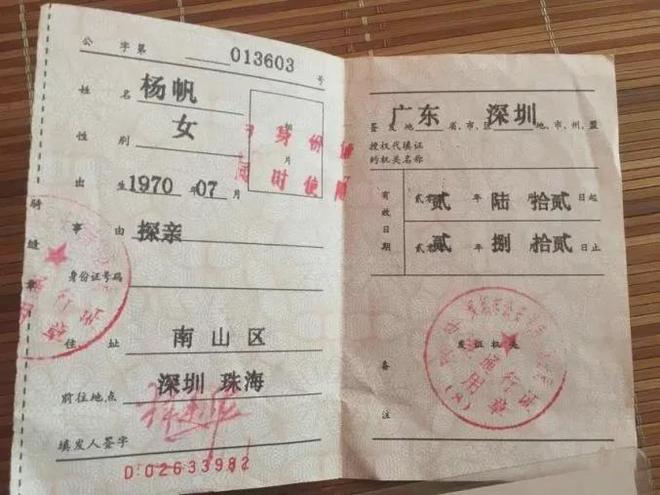 公 字第 013603 号
姓 名 杨帆
性 别 女
出 生 1970 07 月
事 由 探亲
身份证号码
住 址 南山区
前往地点 深圳 珠海
填发人签字
D:02633982
骑缝章
片
身份证
同时使用
广东 深圳
签发地 省、市、区 地、市、州、盟
授权代填证
的机关名称
有效日期
贰 年 陆 拾贰 日起
贰 年 捌 拾贰 日止
发证机关
备
注
通行证
用章